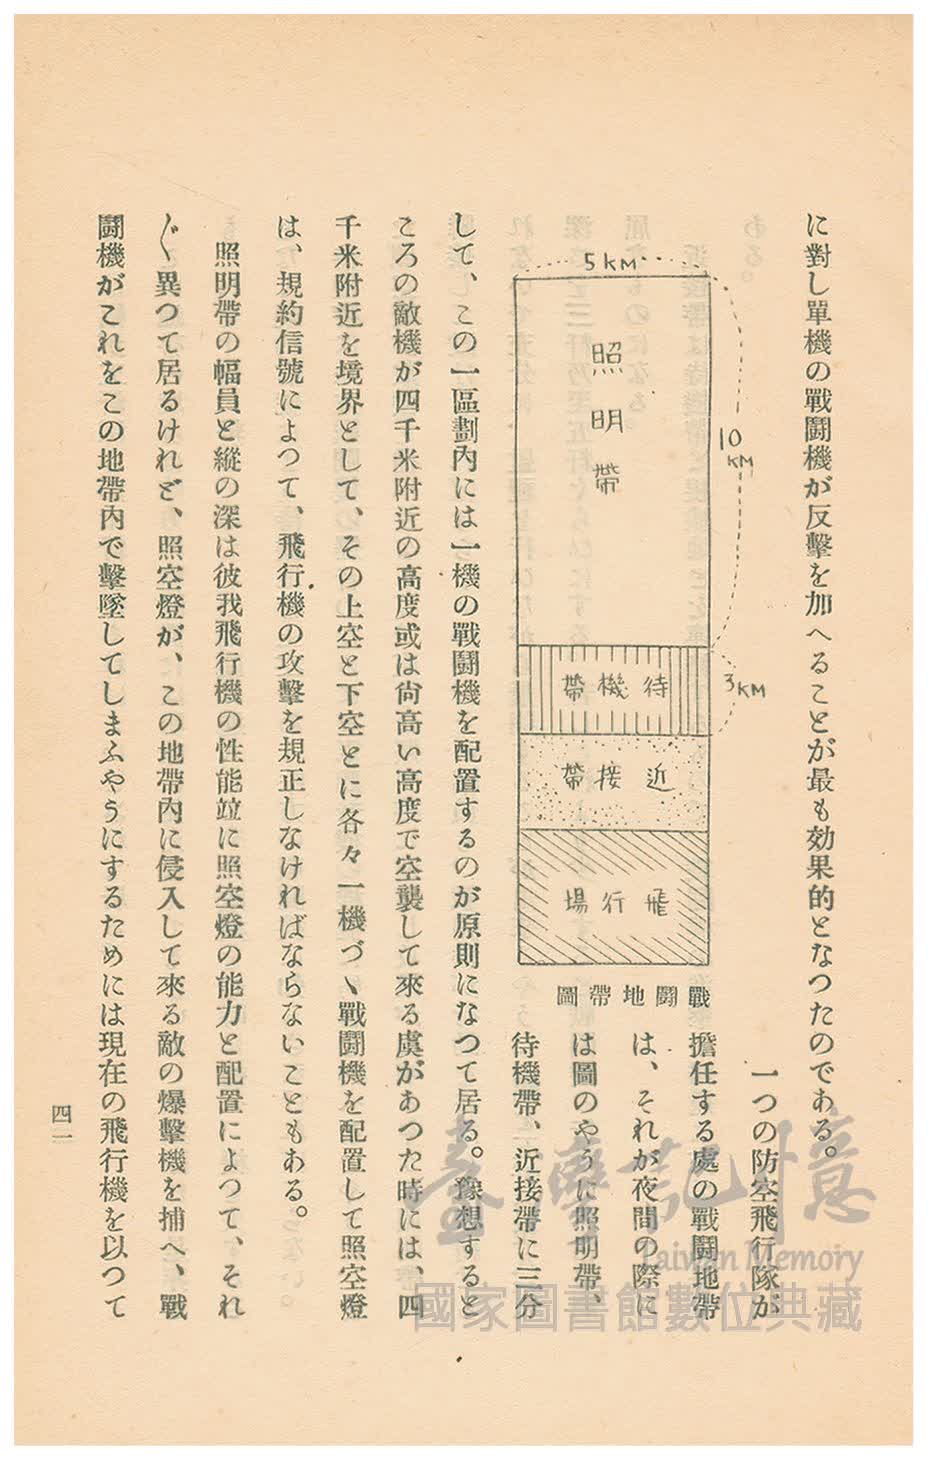 に對し單機の戰鬪機が反擊を加へることが最も効果的となつたのである。
一つの防空飛行隊が
擔任する處の戰鬪地帶
は、それが夜間の際に
は圖のやうに照明帶、
待機帶、近接帶に三分
5KM
10KM
3KM
照明帶
待機帶
近接帶
飛行場
戰鬪地帶圖
して、この一區劃內には一機の戰鬪機を配置するのが原則になつて居る。豫想すると
ころの敵機が四千米附近の高度或は尙高い高度で空襲して來る虞があつた時には、四
千米附近を境界として、その上空と下空とに各々一機づゝ戰鬪機を配置して照空燈
は、規約信號によつて、飛行機の攻擊を規正しなければならないこともある。
照明帶の幅員と縱の深は彼我飛行機の性能竝に照空燈の能力と配置によつて、それ
〲異つて居るけれど、照空燈が、この地帶內に侵入して來る敵の爆擊機を捕へ、戰
鬪機がこれをこの地帶內で擊墜してしまふやうにするためには現在の飛行機を以つて
四一
臺灣記憶
Taiwan Memory
國家圖書館數位典藏